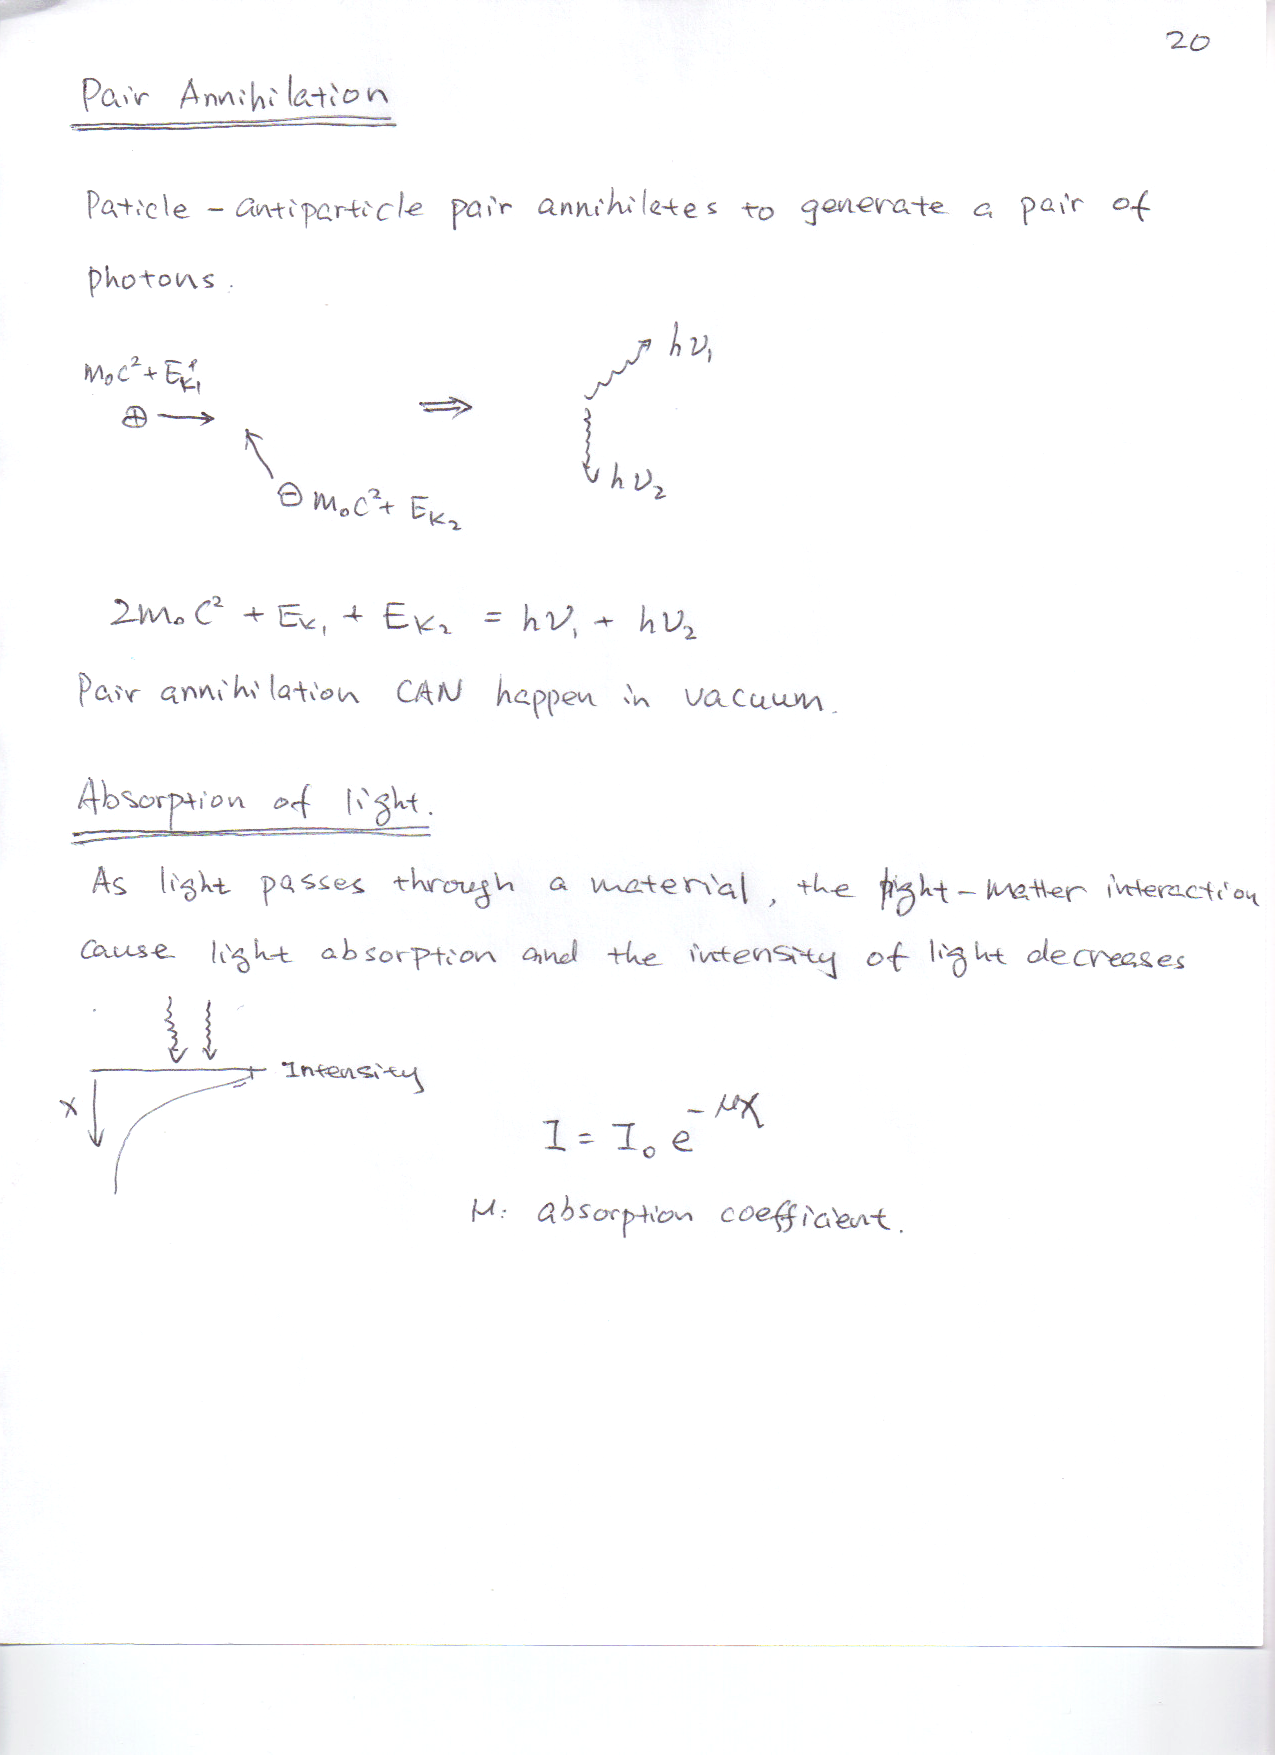 20
Pair Annihilation
Paticle - antiparticle pair annihilates to generate a pair of
photons.
m₀c² + E_K₁
⊕ → ⇒ hν₁
⊖ m₀c² + E_K₂
hν₂
2m₀c² + E_K₁ + E_K₂ = hν₁ + hν₂
Pair annihilation CAN happen in vacuum.
Absorption of light.
As light passes through a material, the light-matter interaction
cause light absorption and the intensity of light decreases
Intensity
x
I = I₀ e^-μx
μ: absorption coefficient.